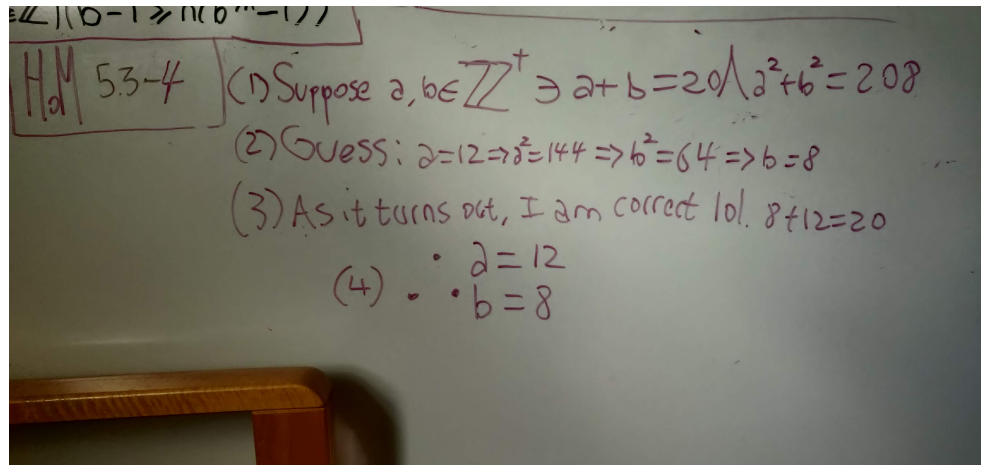 HoM 5.3-4
(1) Suppose a, b ∈ ℤ⁺ ∋ a + b = 20 ∧ a² + b² = 208
(2) Guess: a = 12 => a² = 144 => b² = 64 => b = 8
(3) As it turns out, I am correct lol. 8 + 12 = 20
(4) ∴ a = 12
b = 8